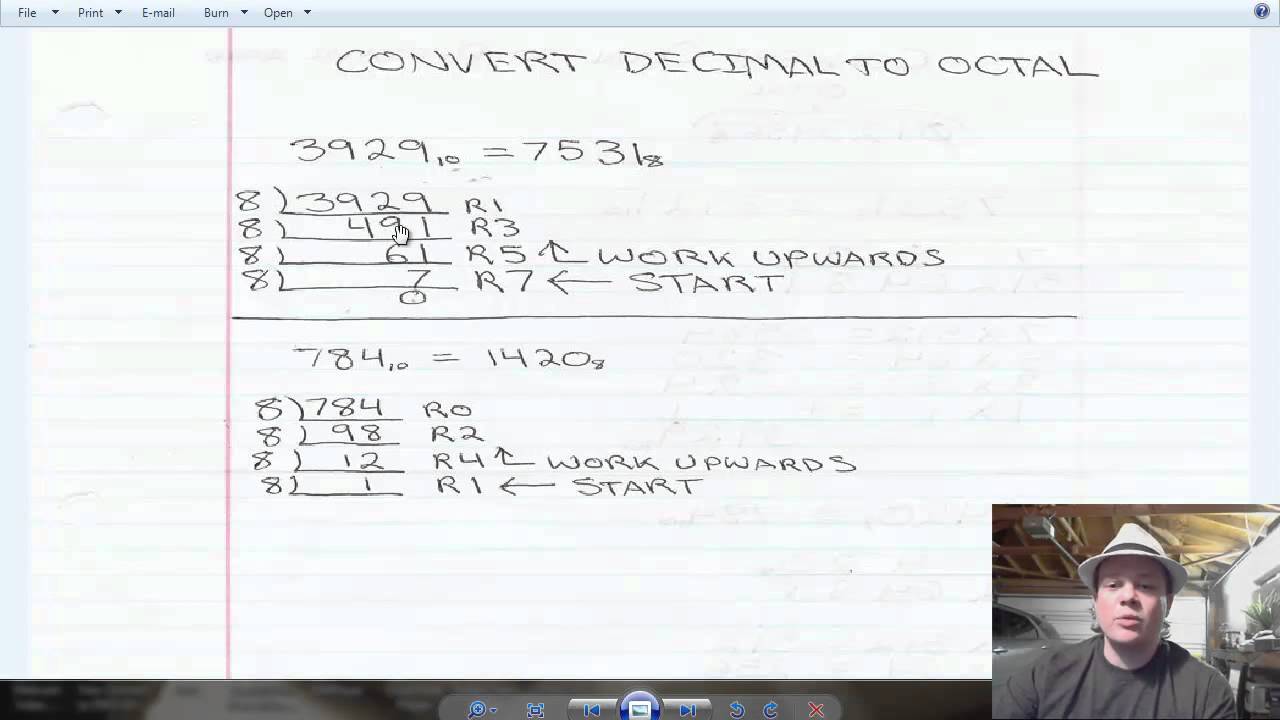 File Print E-mail Burn Open
CONVERT DECIMAL TO OCTAL
3929₁₀ = 7531₈
8)3929 R1
8) 491 R3
8) 61 R5 ↑ WORK UPWARDS
8) 7 R7 ← START
0
784₁₀ = 1420₈
8)784 R0
8) 98 R2
8) 12 R4 ↑ WORK UPWARDS
8) 1 R1 ← START